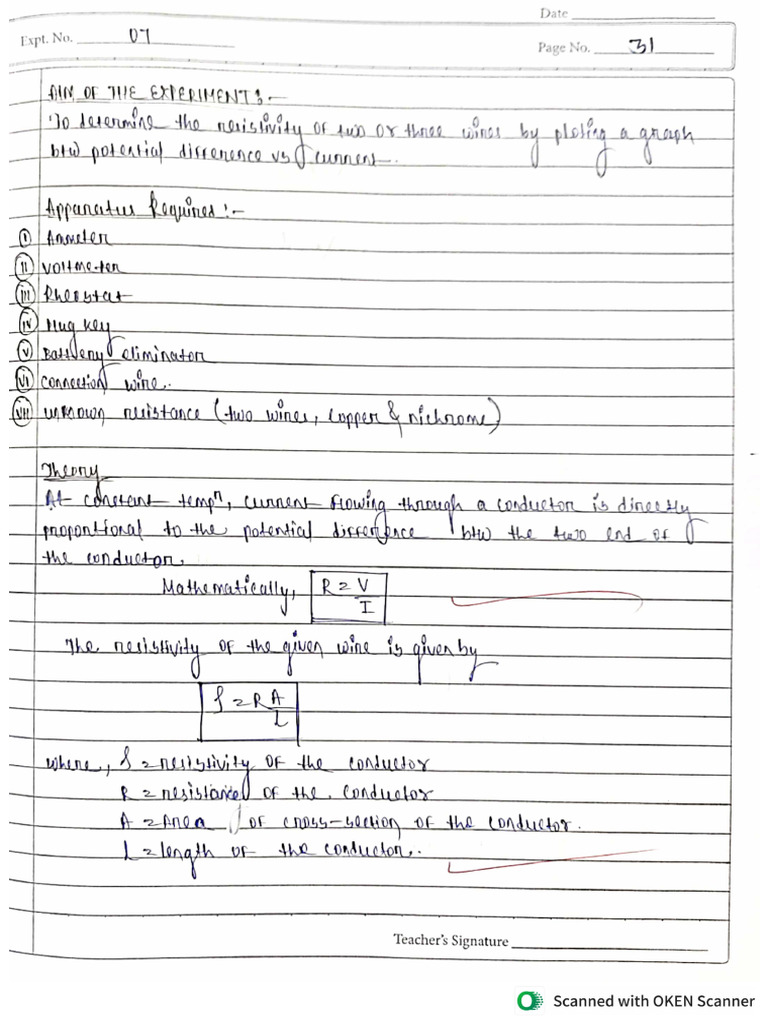 Date
Expt. No. 07
Page No. 31
AIM OF THE EXPERIMENTS:-
To determine the resistivity of two or three wires by ploting a graph
btw potential difference vs current.
Apparatus Required:-
(i) Ammeter
(ii) Voltmeter
(iii) Rheostat
(iv) Plug key
(v) Battery eliminator
(vi) connection wire.
(vii) unknown resistance (two wires, copper & nichrome)
Theory
At constant tempⁿ, current flowing through a conductor is directly
proportional to the potential difference btw the two end of
the conductor.
Mathematically, R = V/I
The resistivity of the given wire is given by
ρ = R A/L
where, ρ = resistivity of the conductor
R = resistance of the conductor
A = Area of cross-section of the conductor.
L = length of the conductor.
Teacher's Signature
Scanned with OKEN Scanner